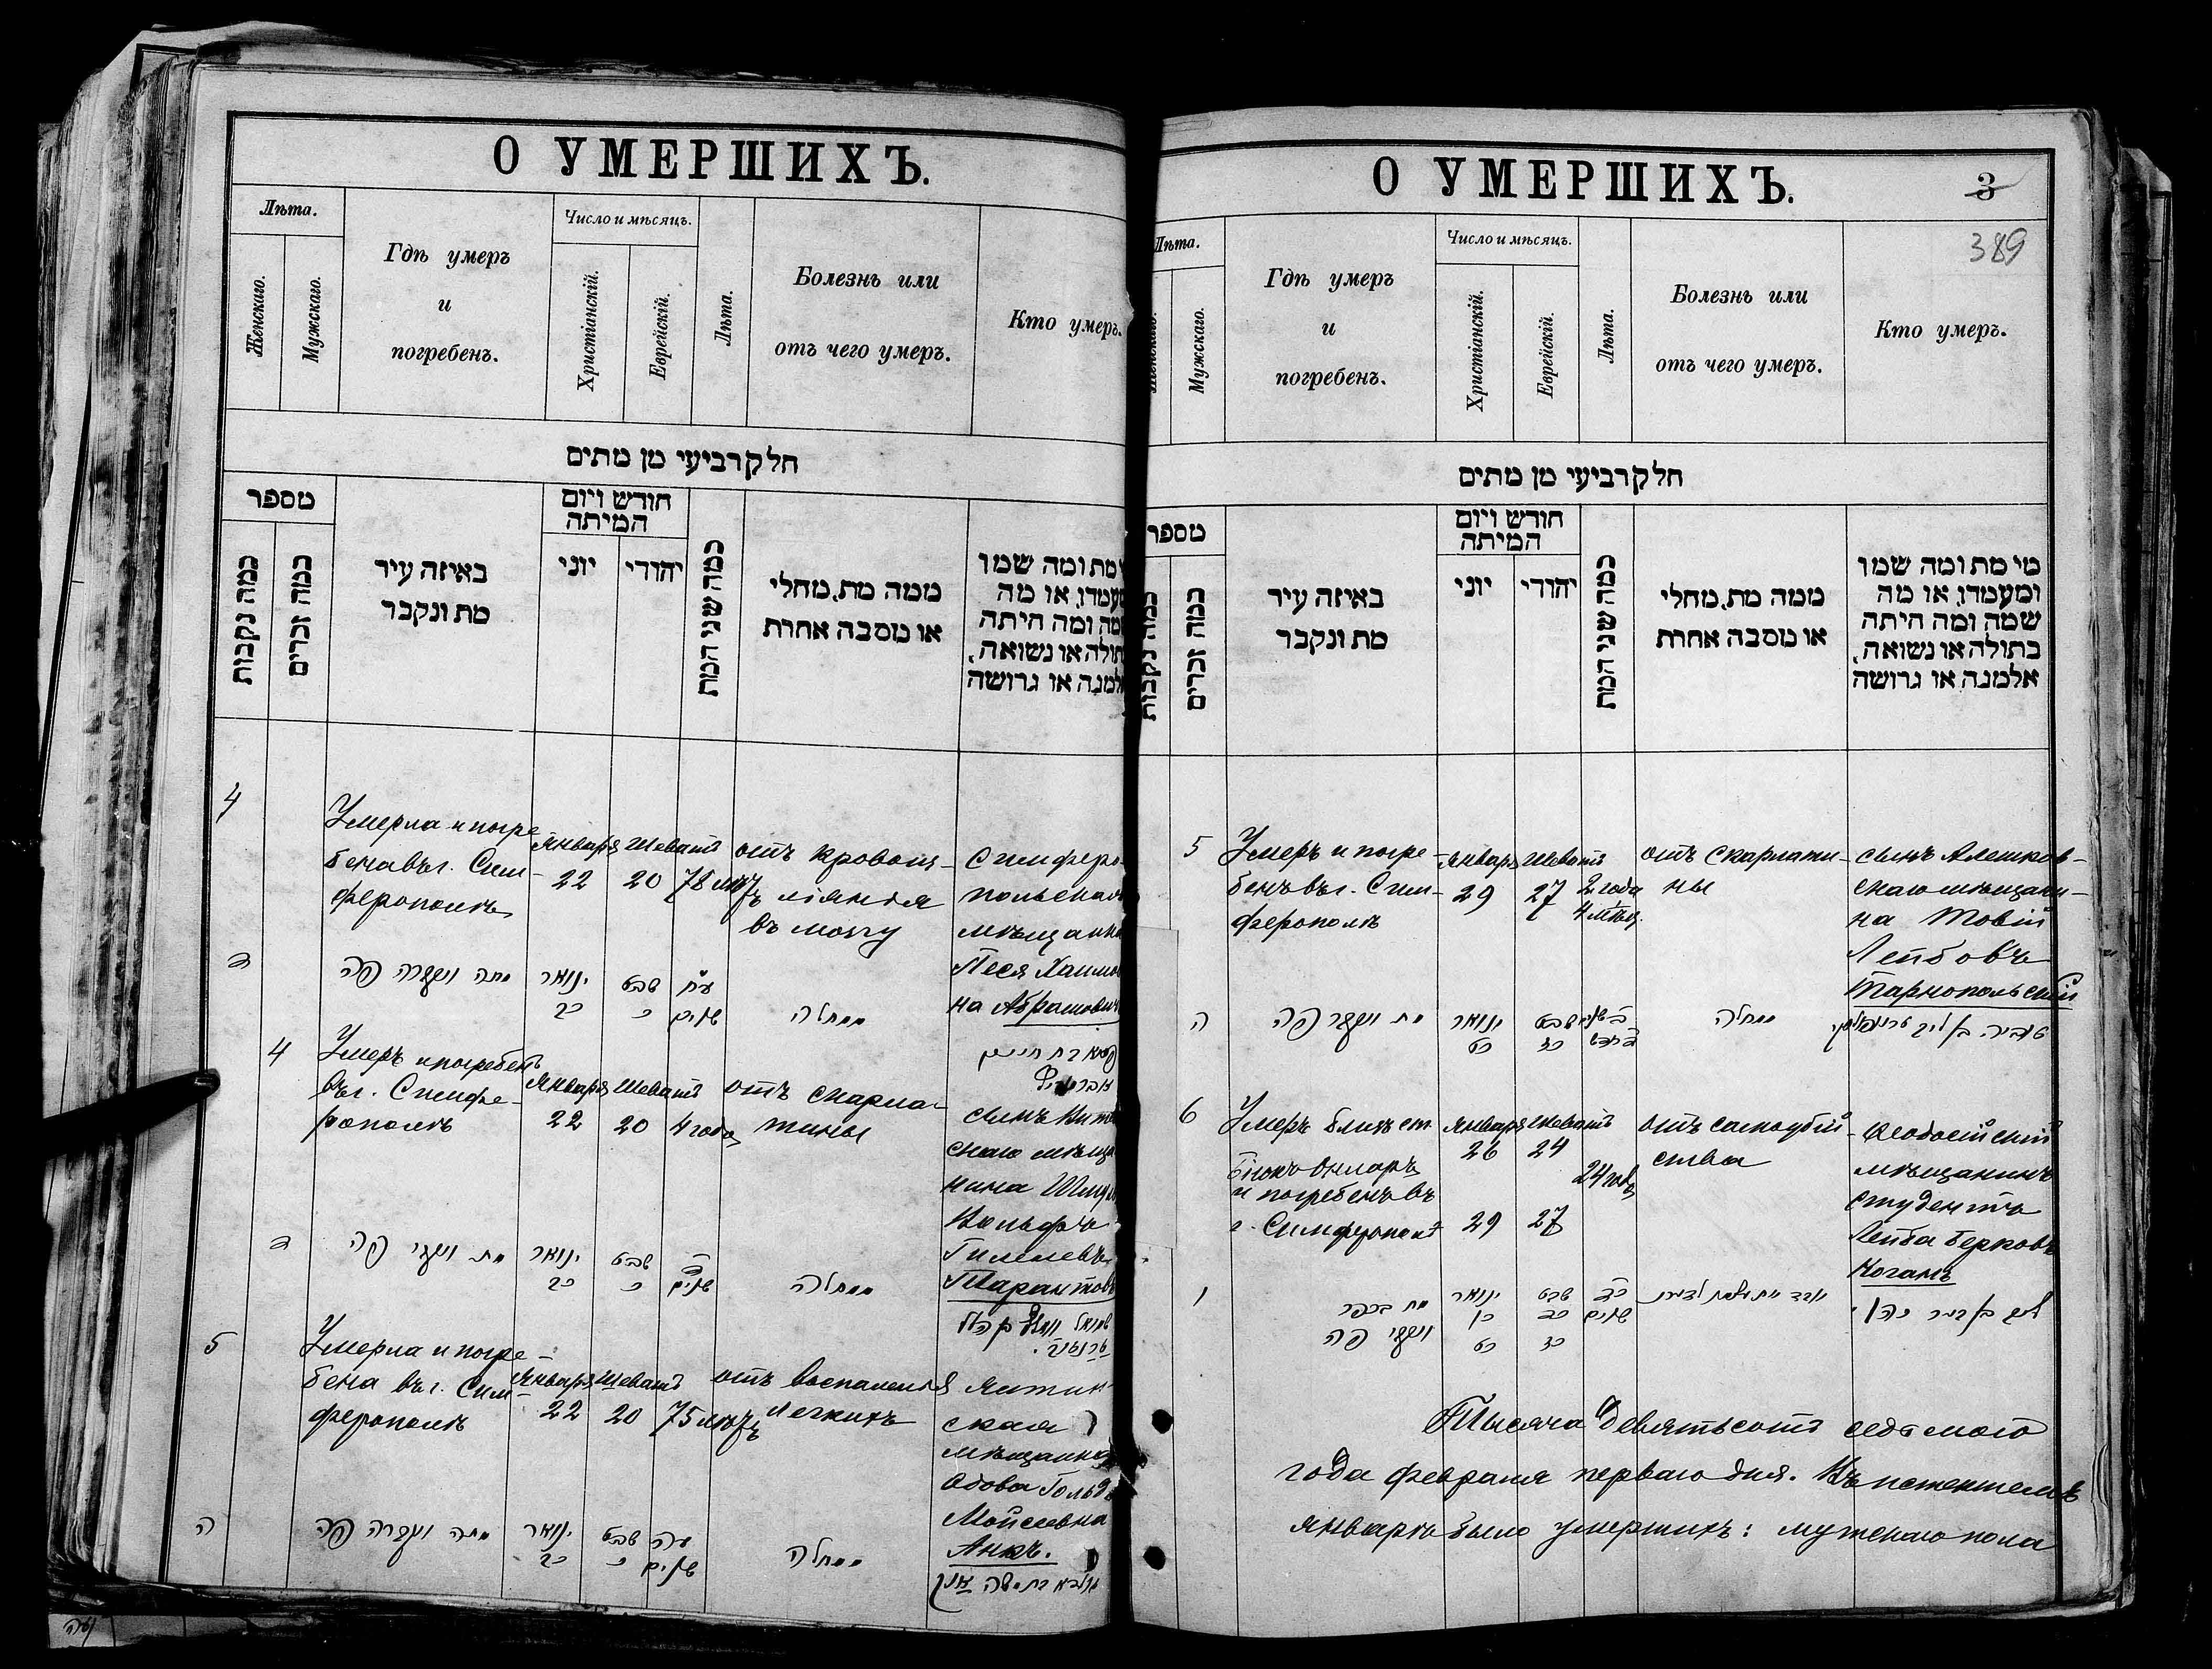 О УМЕРШИХЪ.
Лѣта.
Женскаго.
Мужскаго.
Гдѣ умеръ
и
погребенъ.
Число и мѣсяцъ.
Христіанскій.
Еврейскій.
Лѣта.
Болезнь или
отъ чего умеръ.
Кто умеръ.
חלק רביעי מן מתים
מספר
כמה נקבות
כמה זכרים
באיזה עיר
מת ונקבר
חודש ויום
המיתה
יוני
יהודי
כמה שני המת
ממה מת, מחלי
או מסבה אחרת
מת ומה שמו
או מה
ומה היתה
או נשואה,
או גרושה
4
Умерла и погре
бена въ г. Сим-
ферополѣ
Января
22
Шеватъ
20
78 лѣтъ
отъ кровоиз-
ліянія
въ мозгу
Симферо-
польская
мѣщанка
Песя Хаимов
на Абрамович
ד
מתה ונקברה פה
ינואר
כב
שבט
כ
עח
שנים
ממחלה
4
Умеръ и погребенъ
въ г. Симфе-
рополѣ
Января
22
Шеватъ
20
4 года
отъ скарла-
тины
сынъ
скаго мѣща
нина
Вольфъ
Гиллелевъ
Тарантовъ
ד
מת ונקבר פה
ינואר
כב
שבט
כ
ד
שנים
ממחלה
5
Умерла и погре-
бена въ г. Сим-
ферополѣ
Января
22
Шеватъ
20
75 лѣтъ
отъ воспаленія
легкихъ
ская
мѣщанка
вдова Гольда
Мойсеевна
Анкъ.
ה
מתה ונקברה פה
ינואר
כב
שבט
כ
עה
שנים
ממחלה
О УМЕРШИХЪ.
3
389
Лѣта.
Мужскаго.
Гдѣ умеръ
и
погребенъ.
Число и мѣсяцъ.
Христіанскій.
Еврейскій.
Лѣта.
Болезнь или
отъ чего умеръ.
Кто умеръ.
חלק רביעי מן מתים
מספר
כמה נקבות
כמה זכרים
באיזה עיר
מת ונקבר
חודש ויום
המיתה
יוני
יהודי
כמה שני המת
ממה מת, מחלי
או מסבה אחרת
מי מת ומה שמו
ומעמדו, או מה
שמה ומה היתה
בתולה או נשואה,
אלמנה או גרושה
5
Умеръ и погре-
бенъ въ г. Сим-
ферополѣ
Января
29
Шеватъ
27
2 года
4 мѣсяц.
отъ скарлати-
ны
сынъ Алешков-
скаго мѣщани-
на Товій
Лейбовъ
Тарнопольскій
ה
מת ונקבר פה
ינואר
כט
שבט
כז
ממחלה
6
Умеръ близь ст.
Бiюкъ-Онларъ
и погребенъ въ
г. Симферополѣ
Января
26
29
Шеватъ
24
27
24 годъ
отъ самоубій-
ства
Ѳеодосійскій
мѣщанинъ
студентъ
Лейба Берковъ
Коганъ
ו
מת בכפר
ונקבר פה
ינואר
כו
כט
שבט
כד
כז
כד
שנים
Тысяча девятьсотъ седьмого
года февраля перваго дня. Въ истекшемъ
январѣ было умершихъ: мужскаго пола